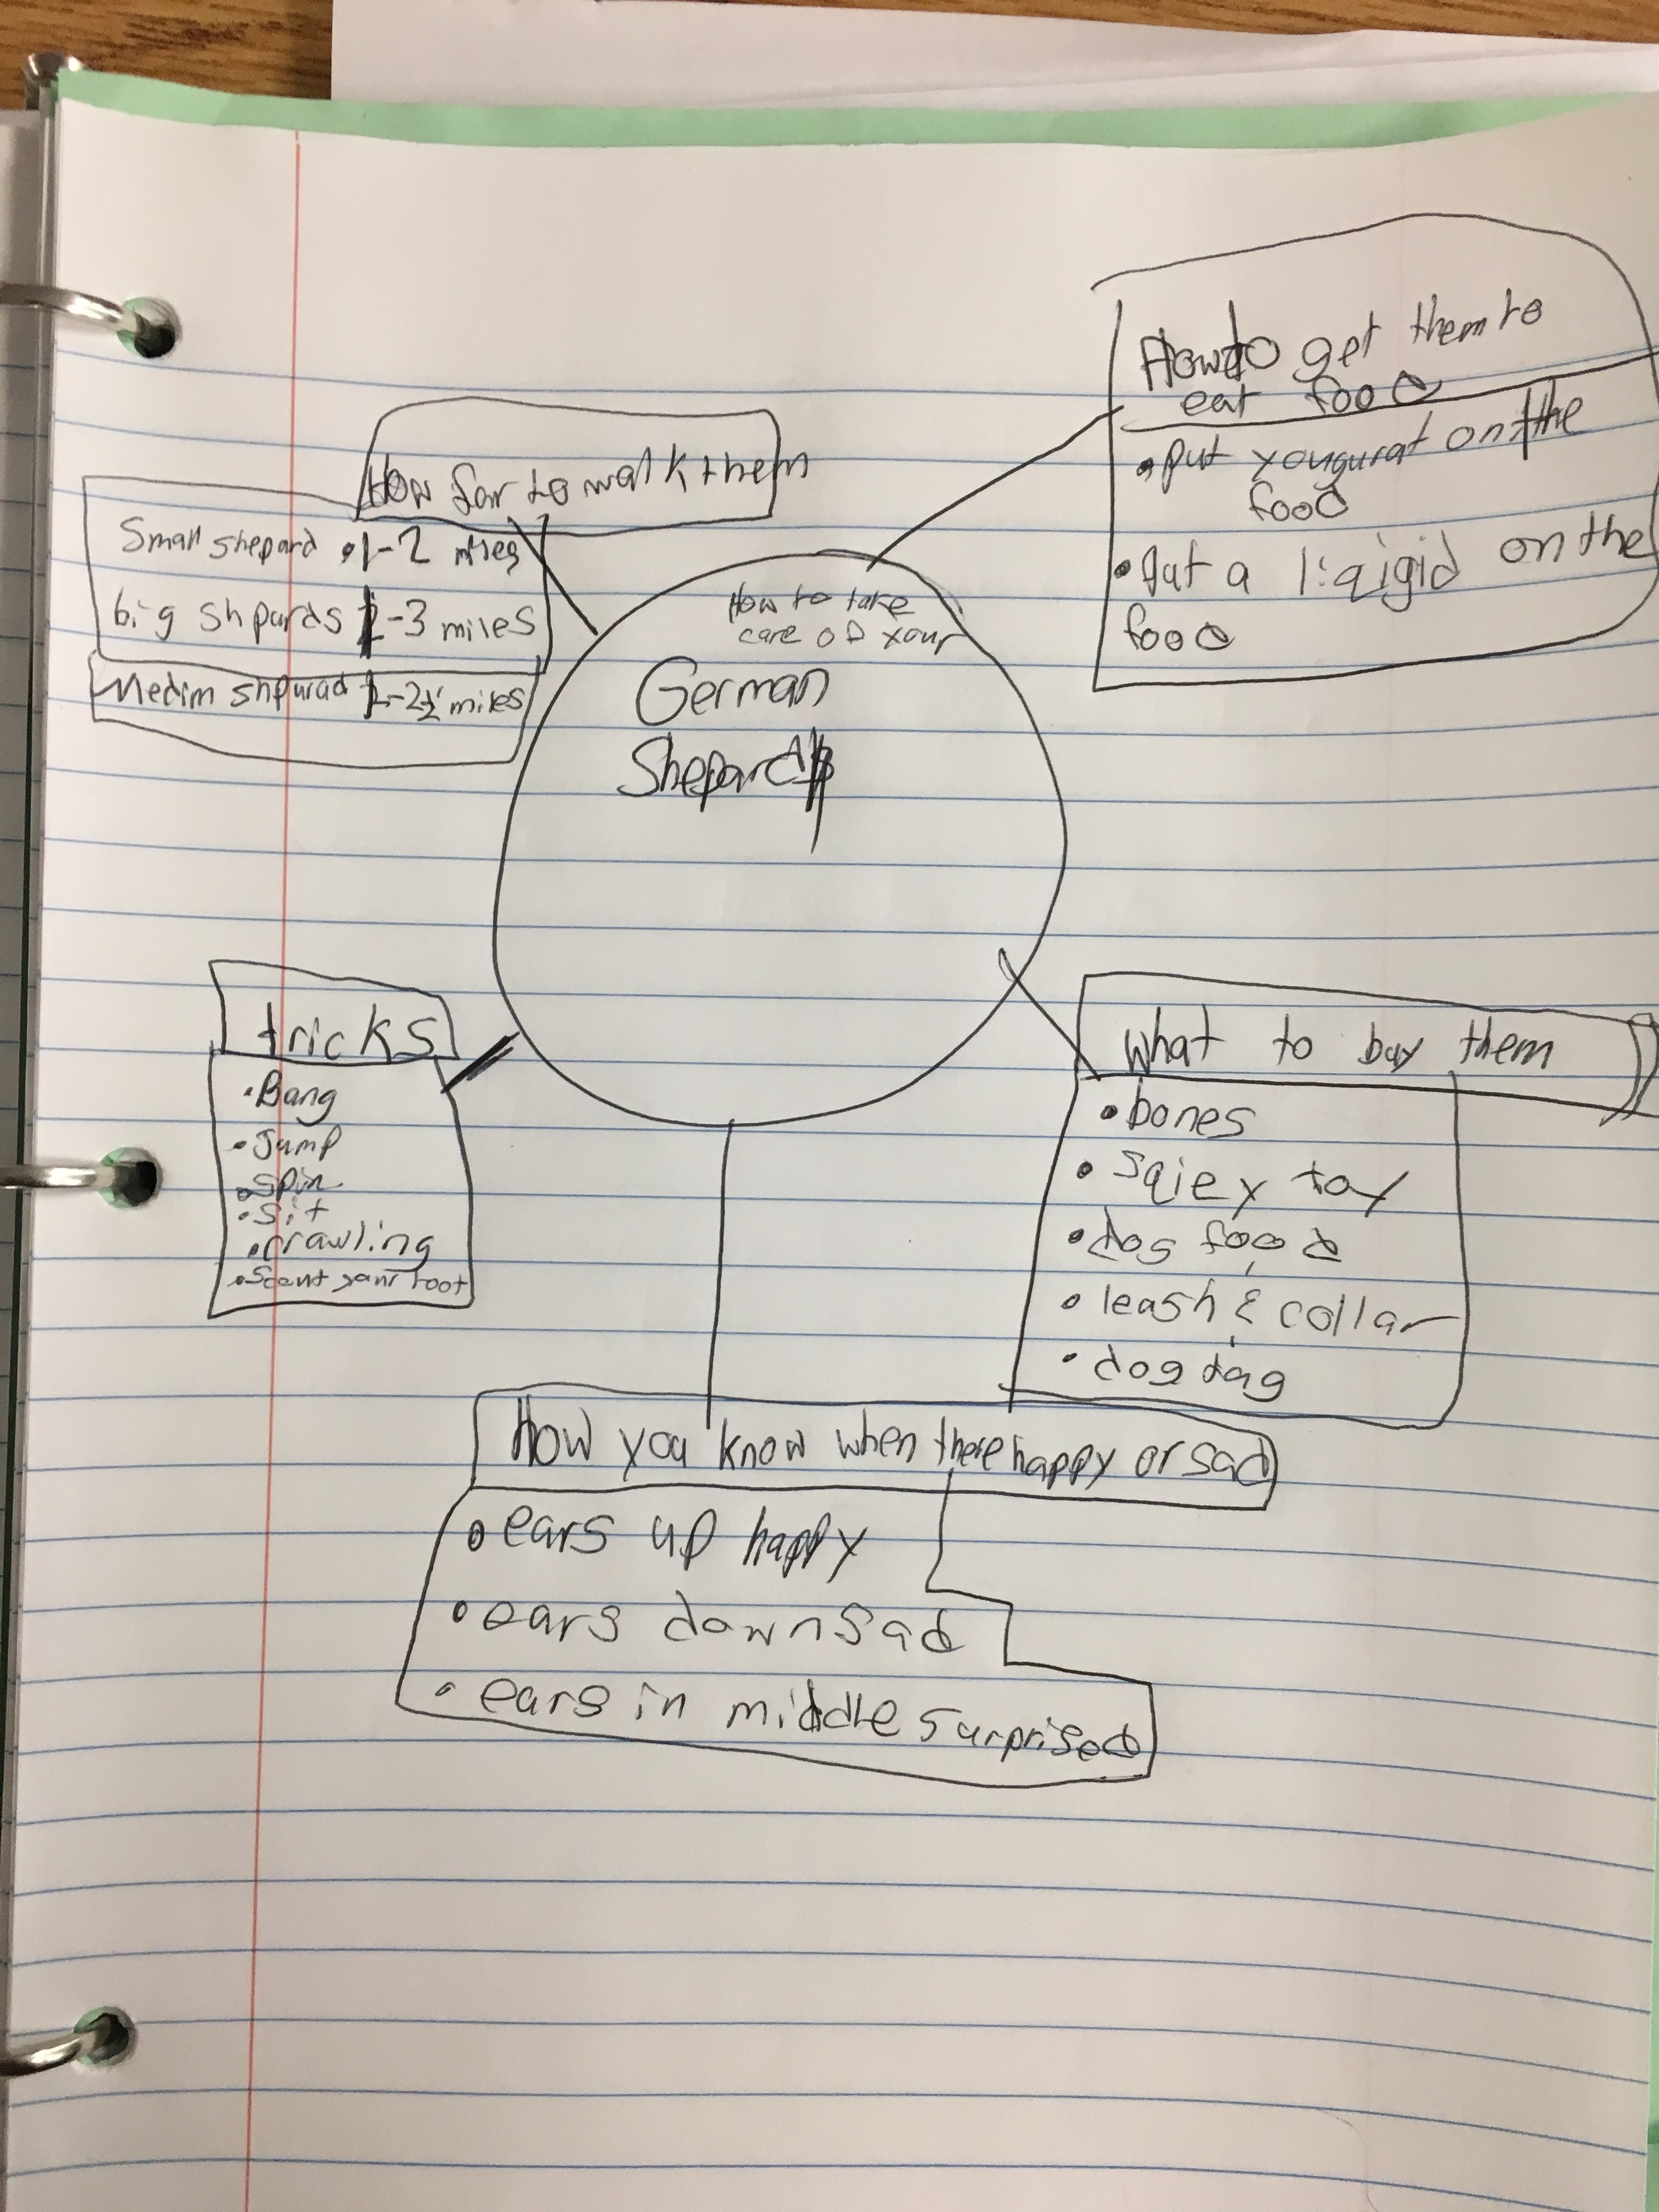 How to take
care of your
German
Shepard
How to get them to
eat food
• put yougurat on the
food
• Put a liqigid on the
food
How far to walk them
Small shepard • 1-2 miles
big shpards -3 miles
Medim shpurad -2½ miles
tricks
• Bang
• Jump
• Spin
• Sit
• crawling
• your foot
What to buy them
• bones
• sqiey toy
• dog food
• leash & collar
• dog tag
How you know when there happy or sad
• ears up happy
• ears down sad
• ears in middle surprised